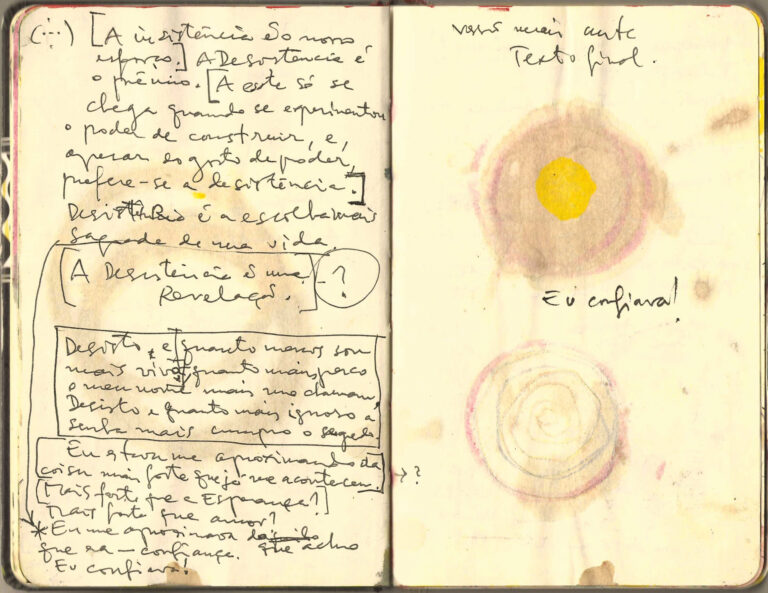 (...) [A insistência é o nosso
esforço.] A Desistência é
o prêmio. [A este só se
chega quando se experimentou
o poder de construir, e,
apesar do gosto de poder,
prefere-se a desistência.]
Desistência é a escolha mais
sagrada de uma vida.
[A Desistência é uma - ?
Revelação.]
Desisto, e quanto menos sou
mais vivo, quanto mais perco
o meu nome mais me chamam,
Desisto e quanto mais ignoro a
senha mais cumpro o segredo
Eu estava me aproximando da
coisa mais forte que já me aconteceu.
[Mais forte que a Esperança?]
Mais forte que amor?
* Eu me aproximava do
que era - confiança. que acho
Eu confiava!
→ ?
mais ante
Texto final.
Eu confiava!